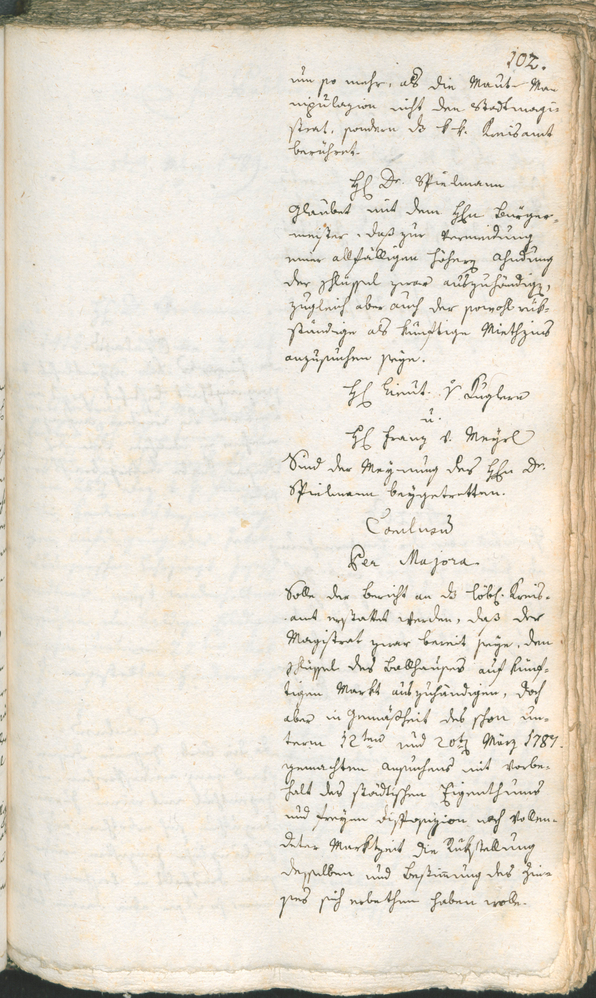 102.
um so mehr, als die Maut-Ma-
nipulazion nicht den Stadtmagi-
strat, sondern ds k. k. Kreisamt
berühret.
H Dr. Spielmann
Glaubet mit dem Hn Bürger-
meister, daß zur Vermeidung
einer allfälligen höhern Ahndung
der Schlüssel zwar auszuhändigen,
zugleich aber auch der sowohl rük-
ständige als künftige Miethzins
anzusuchen seye.
H Lieut. v Kuglern
u.
H Franz v. Meyrl
Sind der Meynung des Hn Dr.
Spielmann beygetretten.
Conclusū
Per Majora
Solle der Bericht an ds löbl. Kreis-
amt erstattet werden, daß der
Magistrat zwar bereit seye, den
Schlüssel des Ballhauses auf künf-
tigen Markt auszuhändigen, doch
aber in Gemäßheit des schon un-
term 12ten und 20ten März 1787.
gemachten Ansuchens mit Vorbe-
halt des städtischen Eigenthums
und freyen Disposizion nach vollen-
deter Marktzeit die Rükstellung
desselben und Bestimmung des Zin-
ses sich erbethen haben wolle.